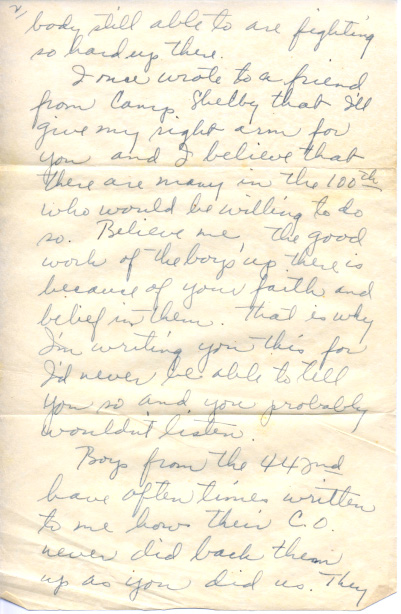 2/
body still able to are fighting
so hard up there.
I once wrote to a friend
from Camp Shelby that I'll
give my right arm for
you and I believe that
there are many in the 100th
who would be willing to do
so. Believe me, the good
work of the boys up there is
because of your faith and
belief in them. That is why
I'm writing you this for
I'd never be able to tell
you so and you probably
wouldn't listen.
Boys from the 442nd
have often times written
to me how their C.O.
never did back them
up as you did us. They